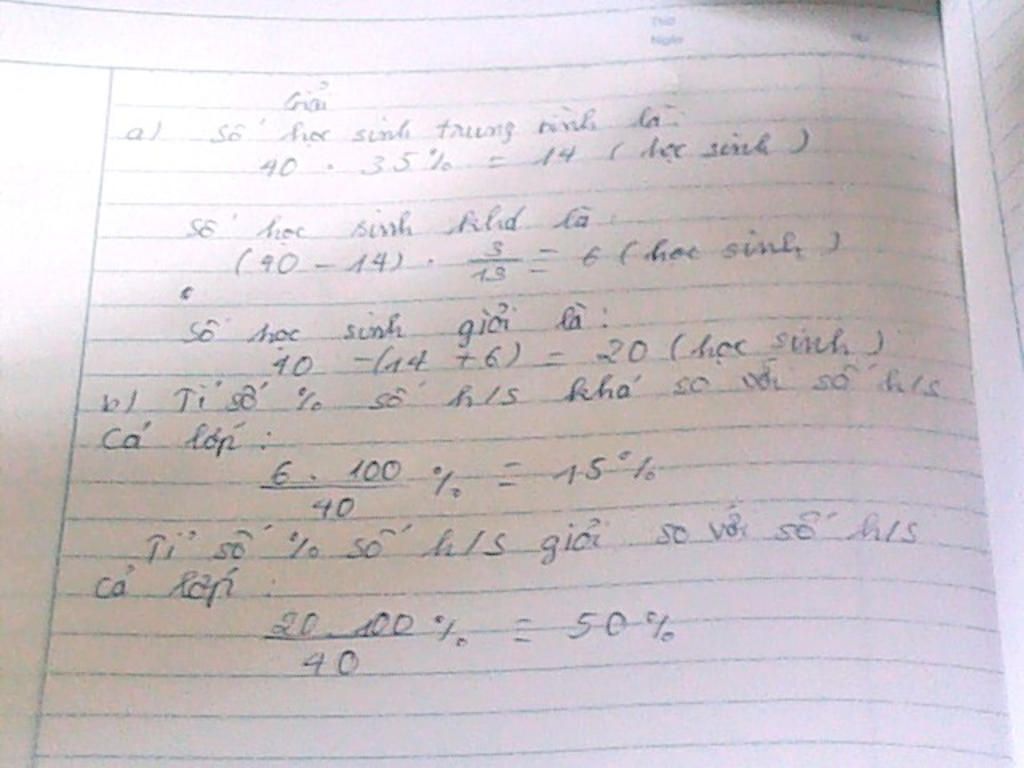 Thứ
Ngày
Giải
a) Số học sinh trung bình là:
40 . 35% = 14 (học sinh)
Số học sinh khá là:
(40 - 14) . 3/13 = 6 (học sinh)
Số học sinh giỏi là:
40 -(14 + 6) = 20 (học sinh)
b) Tỉ số % số h/s khá so với số h/s
cả lớp:
6 . 100/40 % = 15%
Tỉ số % số h/s giỏi so với số h/s
cả lớp:
20 . 100/40 % = 50%